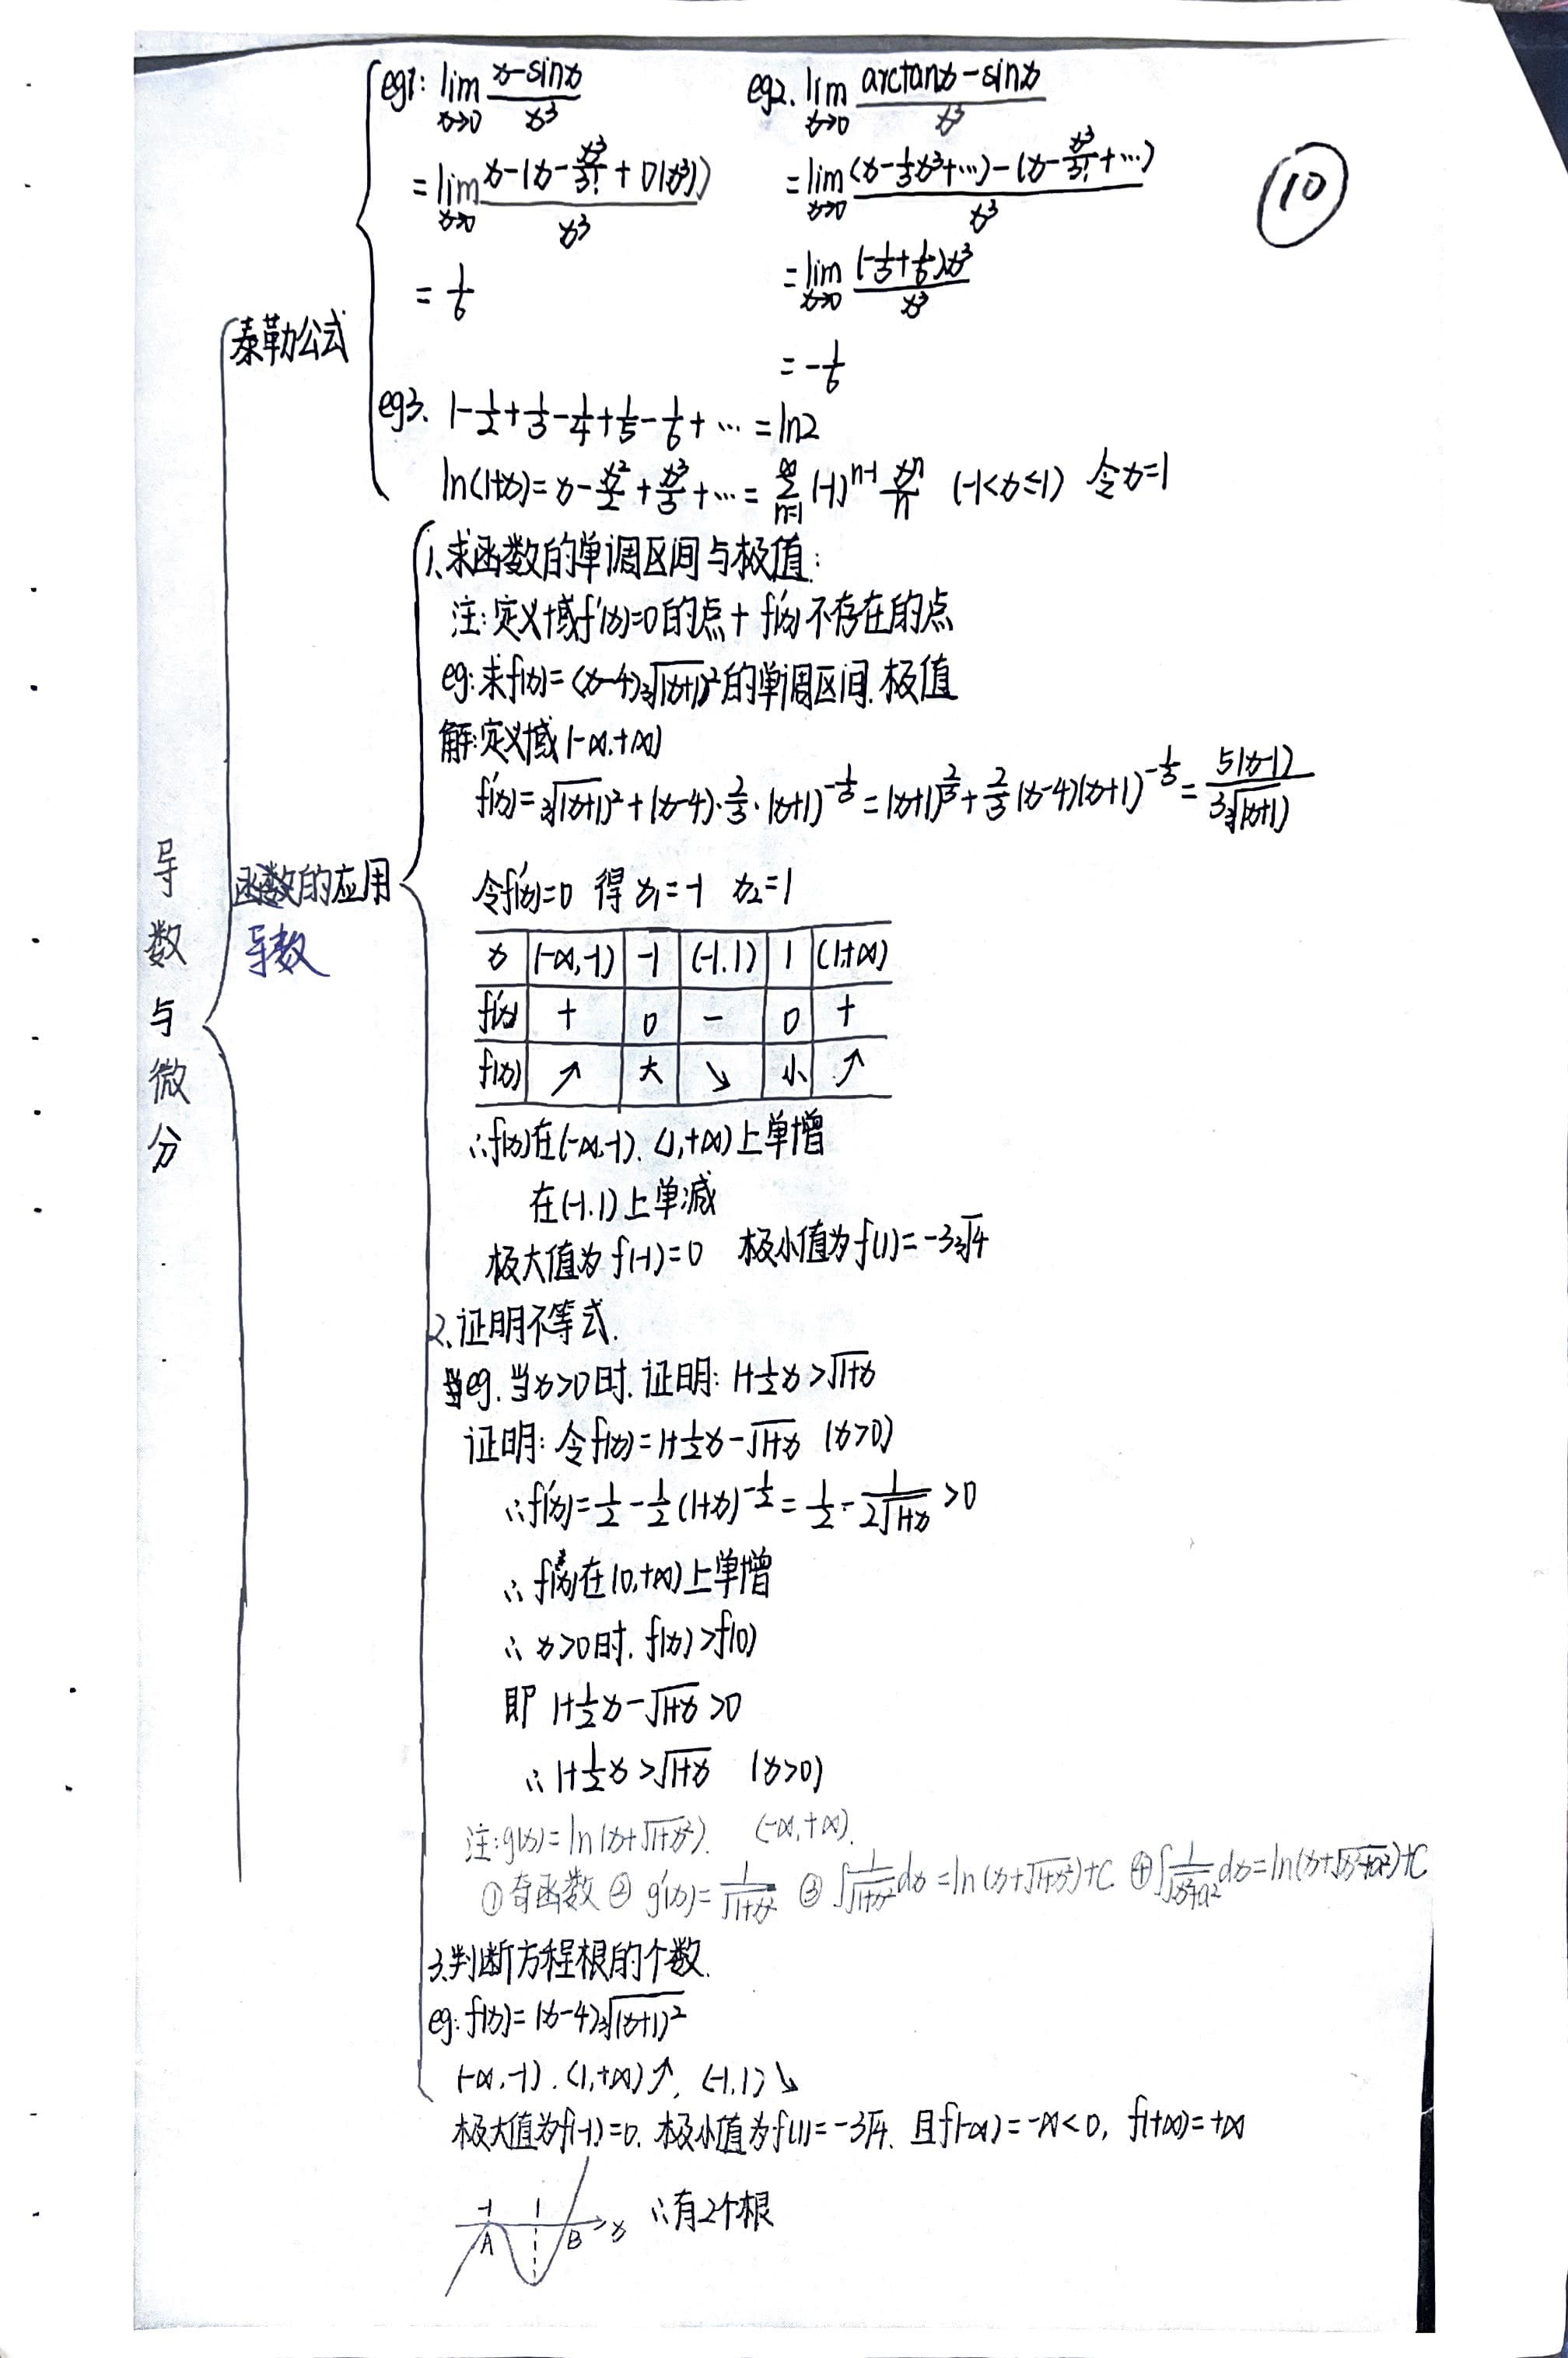 eg1: lim(x→0) (x-sinx)/x³
= lim(x→0) (x-(x-x³/3!+o(x³)))/x³
= 1/6
eg2. lim(x→0) (arctanx-sinx)/x³
= lim(x→0) ((x-1/3x³+…)-(x-x³/3!+…))/x³
= lim(x→0) (-1/3+1/6)x³/x³
= -1/6
⑩
泰勒公式
eg3. 1-1/2+1/3-1/4+1/5-1/6+… = ln2
ln(1+x)=x-x²/2+x³/3+…=∑(n=1→∞)(-1)ⁿ⁻¹xⁿ/n (-1<x≤1) 令x=1
导数与微分
函数的应用
导数
1、求函数的单调区间与极值:
注:定义域f'(x)=0的点+f'(x)不存在的点
eg:求f(x)=(x-4)∛(x+1)²的单调区间.极值
解:定义域(-∞.+∞)
f'(x)=∛(x+1)²+(x-4)·2/3·(x+1)^(-1/3)=(x+1)^(2/3)+2/3(x-4)(x+1)^(-1/3)=5(x-1)/(3∛(x+1))
令f'(x)=0 得 x₁=-1 x₂=1
x (-∞,-1) -1 (-1.1) 1 (1,+∞)
f'(x) + 0 - 0 +
f(x) ↗ 大 ↘ 小 ↗
∴f(x)在(-∞,-1). (1,+∞)上单增
在(-1.1)上单减
极大值为f(-1)=0 极小值为f(1)=-3∛4
2、证明不等式.
eg. 当x>0时. 证明: 1+1/2x>√(1+x)
证明: 令f(x)=1+1/2x-√(1+x) (x>0)
∴f'(x)=1/2-1/2(1+x)^(-1/2)=1/2-1/(2√(1+x))>0
∴f(x)在(0,+∞)上单增
∴x>0时. f(x)>f(0)
即 1+1/2x-√(1+x)>0
∴1+1/2x>√(1+x) (x>0)
注:g(x)=ln(x+√(1+x²)). (-∞,+∞).
①奇函数 ② g'(x)=1/√(1+x²) ③ ∫1/√(1+x²)dx=ln(x+√(1+x²))+C ④ ∫1/√(x²+a²)dx=ln(x+√(x²+a²))+C
3、判断方程根的个数.
eg: f(x)=(x-4)∛(x+1)²
(-∞,-1). (1,+∞)↗, (-1,1)↘
极大值为f(-1)=0. 极小值为f(1)=-3∛4. 且f(-∞)=-∞<0, f(+∞)=+∞
-1 1 A B x ∴有2个根